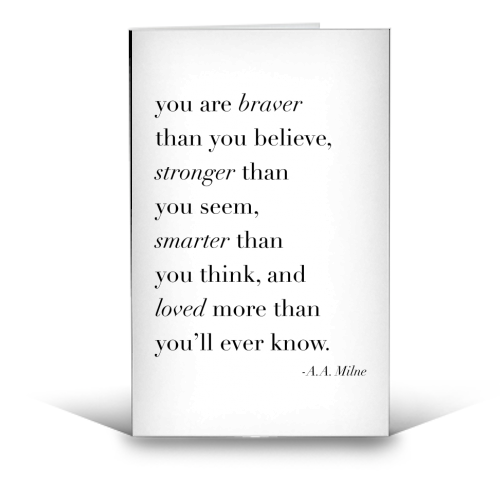 you are braver
than you believe,
stronger than
you seem,
smarter than
you think, and
loved more than
you’ll ever know.
-A.A. Milne